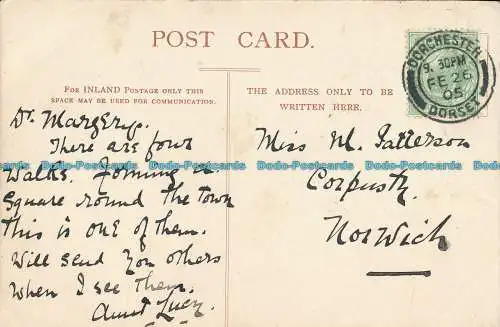 POST CARD.
FOR INLAND POSTAGE ONLY THIS
SPACE MAY BE USED FOR COMMUNICATION.
THE ADDRESS ONLY TO BE
WRITTEN HERE.
DORCHESTER
9.30PM
FE 26
05
DORSET
Dr. Margery.
There are four
walks. Forming a
Square round the town
this is one of them.
Will send you others
when I see them.
Aunt Lucy.
Miss M. Patterson
Corpusty
Norwich
Dodo-Postcards Dodo-Postcards Dodo-Postcards Dodo-Postcards Dodo-Postcards